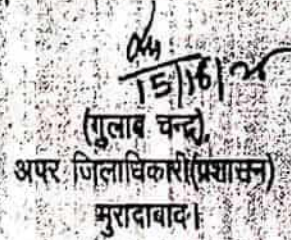 15/16/
(गुलाब चन्द्र),
अपर जिलाधिकारी(प्रशासन)
मुरादाबाद।